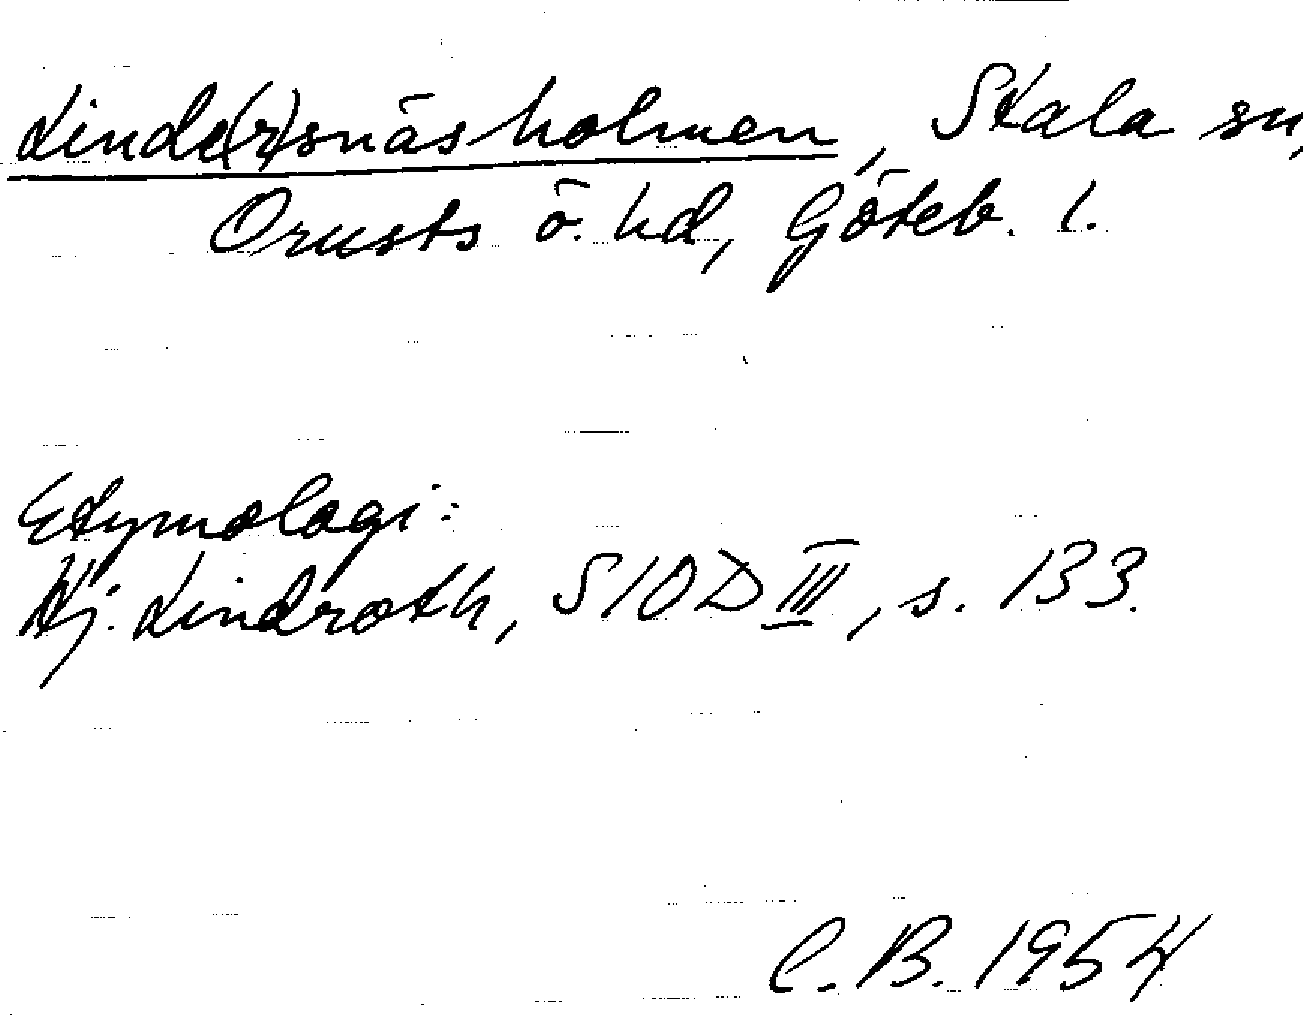 Linde(r)snäsholmen, Stala sn,
Orusts ö. hd, Göteb. l.
Etymologi:
Hj. Lindroth, SIOD III, s. 133.
C. B. 1954